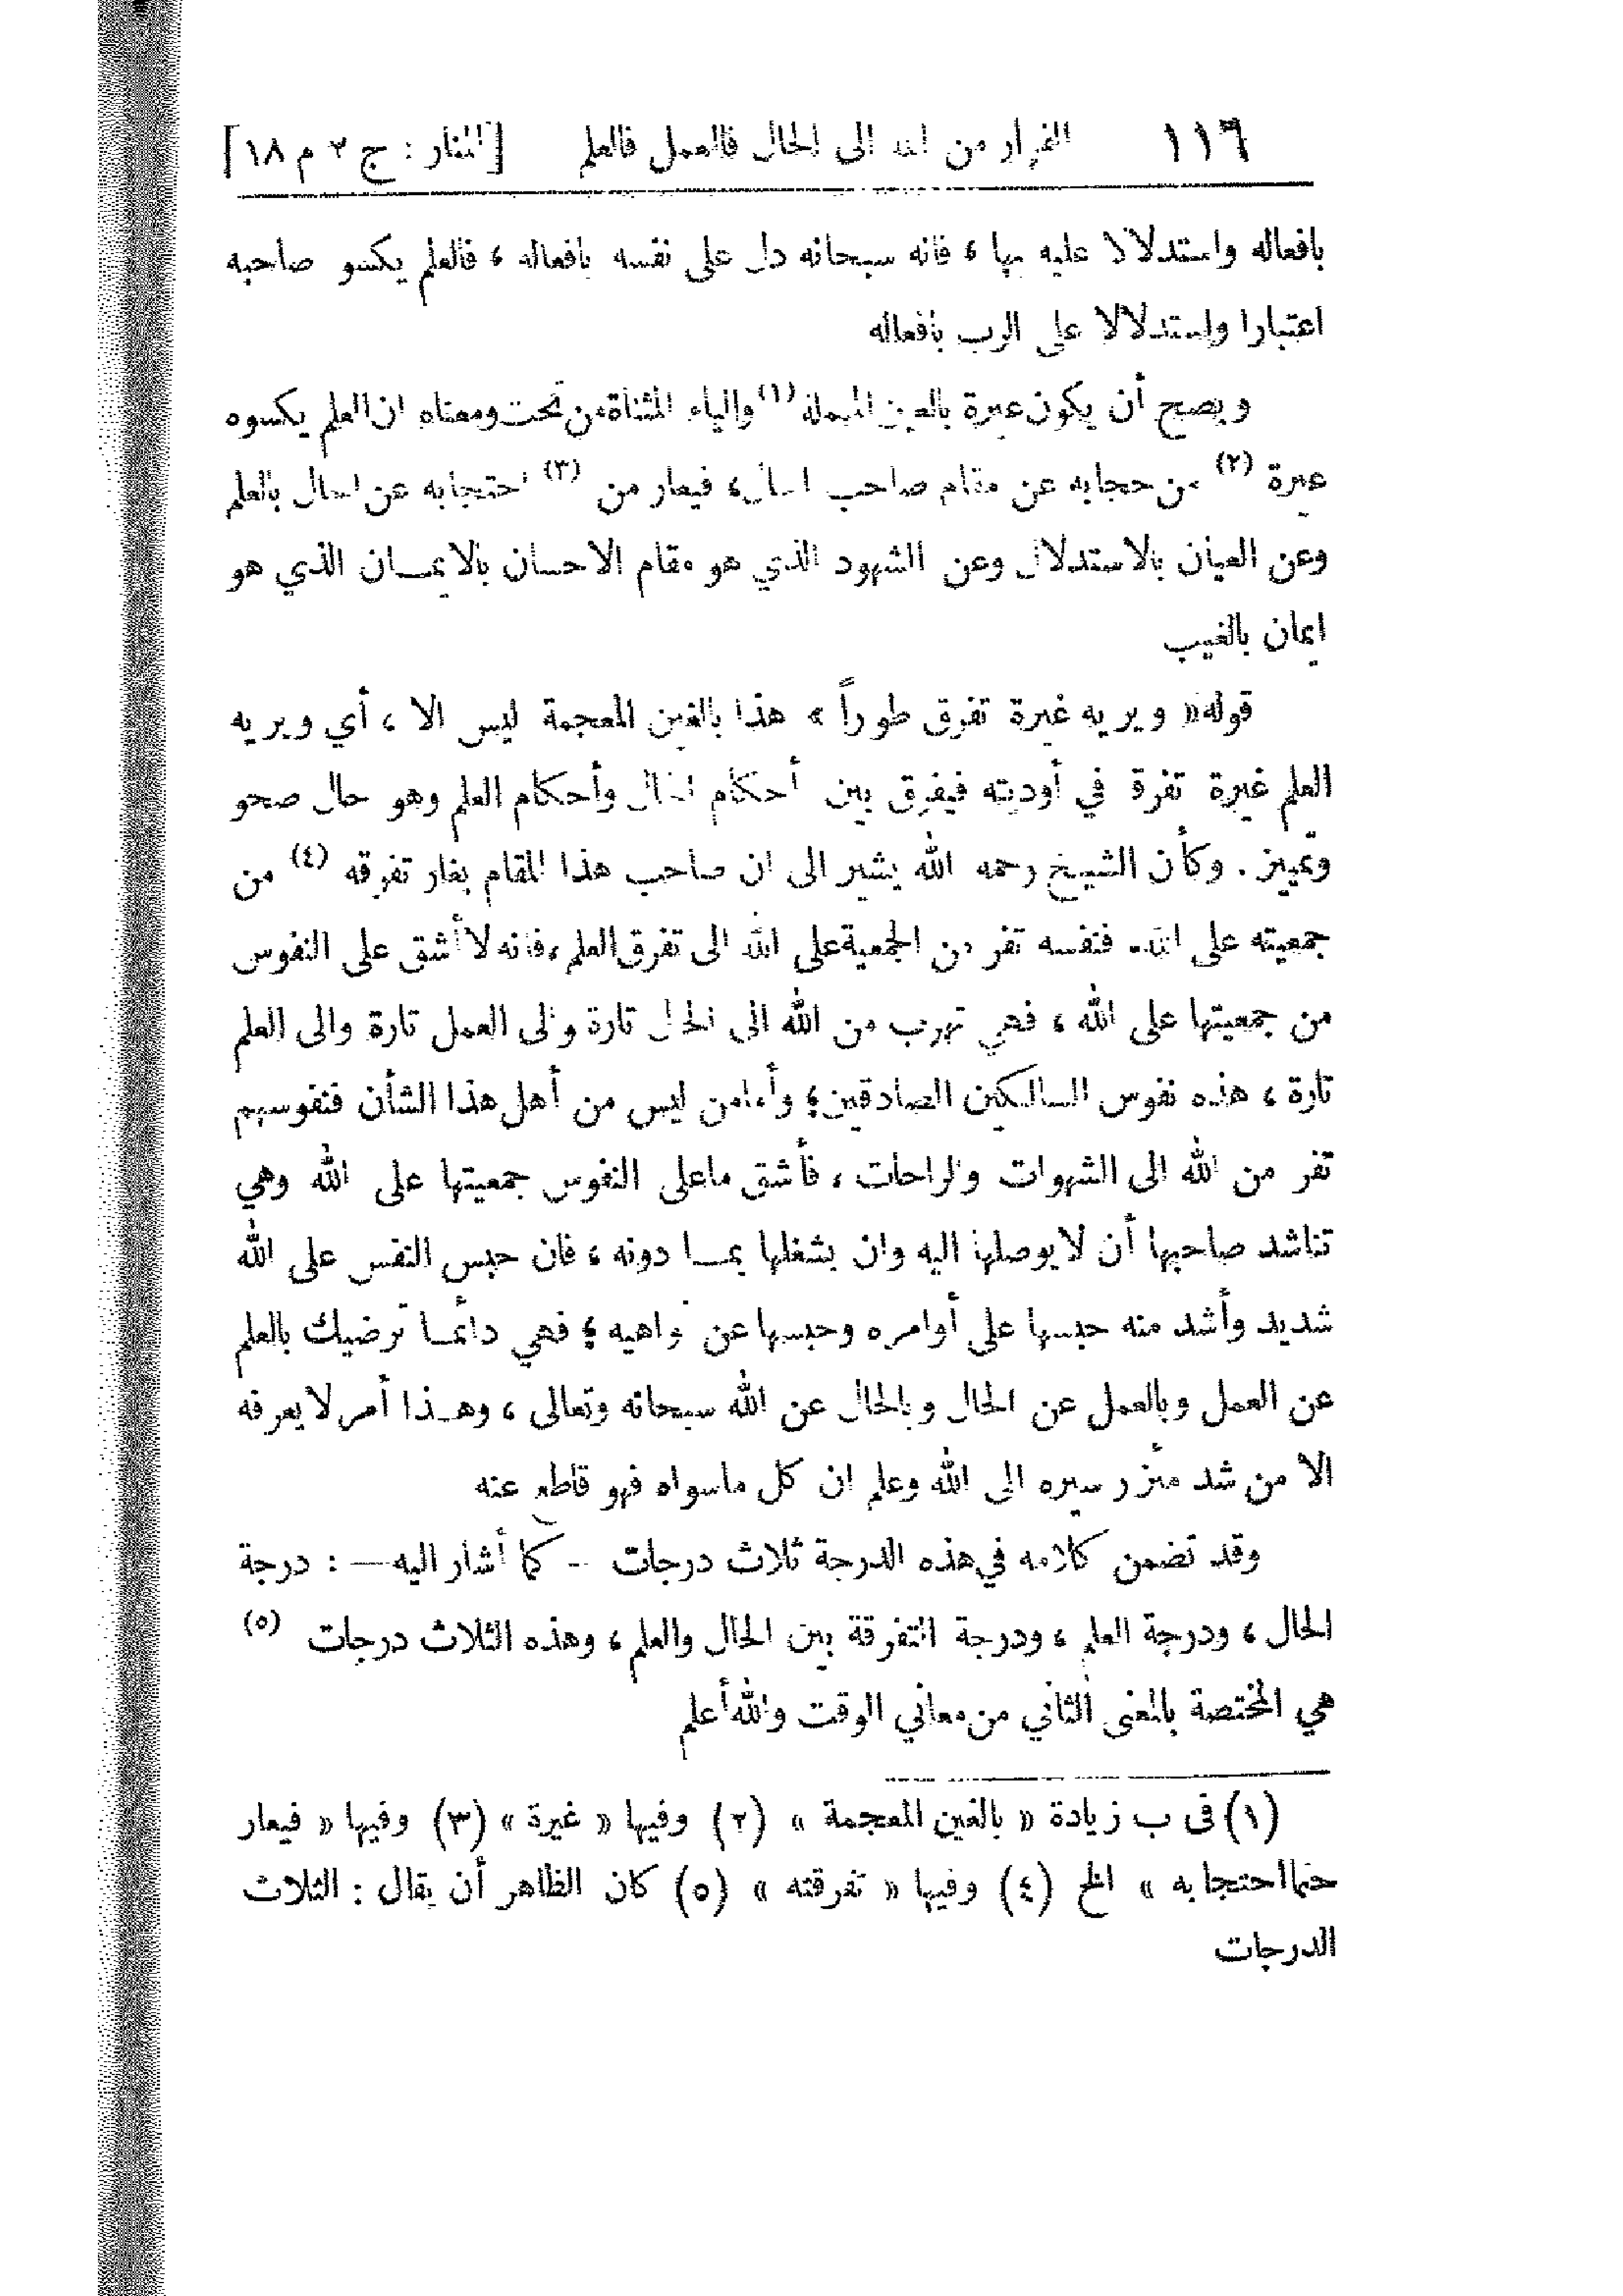 ١١٦ الفرار من الله الى الحال فالعمل فالعلم [المنار : ج ٢ م ١٨]
بافعاله واستدلالا عليه بها ، فانه سبحانه دل على نفسه بافعاله ، فالعلم يكسو صاحبه
اعتبارا واستدلالا على الرب بافعاله
ويصح أن يكون عيرة بالعين المهملة (١) والياء المثناة من تحت ومعناه ان العلم يكسوه
عيرة (٢) من حجابه عن مقام صاحب الحال، فيعار من (٣) احتجابه عن الحال بالعلم
وعن العيان بالاستدلال وعن الشهود الذي هو مقام الاحسان بالايمـــان الذي هو
ايمان بالغيب
قوله « ويريه غيرة تفرق طوراً » هذا بالغين المعجمة ليس الا ، أي ويريه
العلم غيرة تفرة في أوديته فيفرق بين أحكام الحال وأحكام العلم وهو حال صحو
وتمييز . وكأن الشيخ رحمه الله يشير الى ان صاحب هذا المقام يغار تفرقه (٤) من
جمعيته على الله. فنفسه تفر من الجمعية على الله الى تفرق العلم، فانه لا أشق على النفوس
من جمعيتها على الله ، فهي تهرب من الله الى الحال تارة والى العمل تارة والى العلم
تارة ، هذه نفوس السالكين الصادقين؛ وأما من ليس من أهل هذا الشأن فنفوسهم
تفر من الله الى الشهوات والراحات ، فأشق ماعلى النفوس جمعيتها على الله وهي
تناشد صاحبها أن لا يوصلها اليه وان يشغلها بمـــا دونه ، فان حبس النفس على الله
شديد وأشد منه حبسها على أوامره وحبسها عن نواهيه ؛ فهي دائمــا ترضيك بالعلم
عن العمل وبالعمل عن الحال وبالحال عن الله سبحانه وتعالى ، وهــذا أمر لا يعرفه
الا من شد مئزر سيره الى الله وعلم ان كل ماسواه فهو قاطع عنه
وقد تضمن كلامه في هذه الدرجة ثلاث درجات — كما أشار اليه — : درجة
الحال ، ودرجة العلم ، ودرجة التفرقة بين الحال والعلم ، وهذه الثلاث درجات (٥)
هي المختصة بالمعنى الثاني من معاني الوقت والله أعلم
(١) فى ب زيادة « بالغين المعجمة » (٢) وفيها « غيرة » (٣) وفيها « فيعار
حتما احتجابه » الخ (٤) وفيها « تفرقته » (٥) كان الظاهر أن يقال : الثلاث
الدرجات